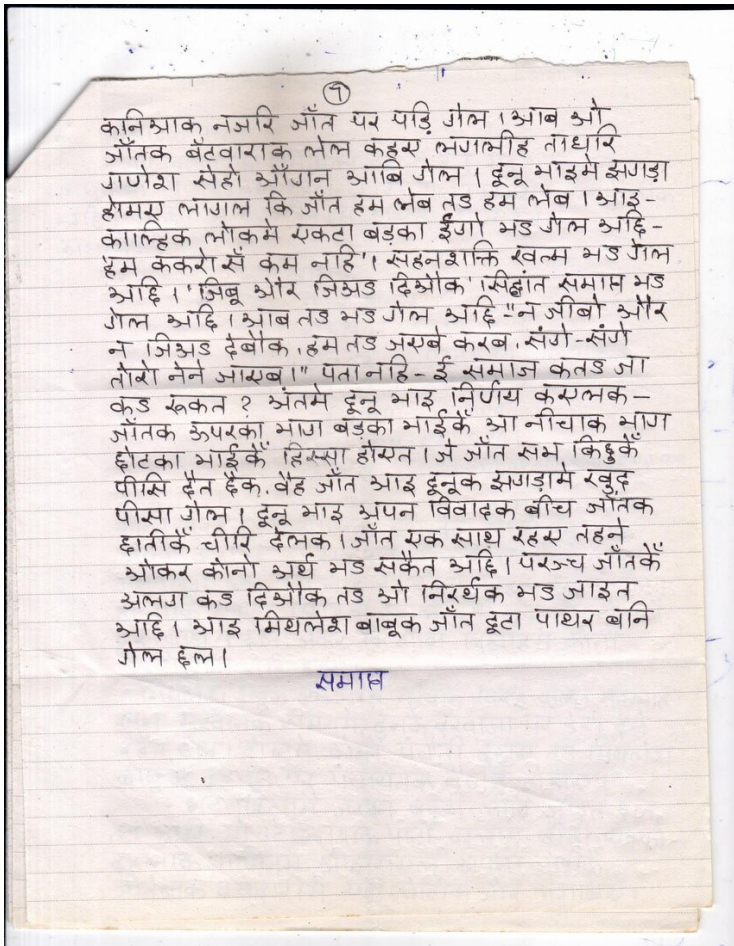 ७
कनिआक नजरि जाँत पर पड़ि गेल । आब ओ
जाँतक बँटवाराक लेल कहए लगलीह ताधरि
गणेश सेहो आँगन आबि गेल । दूनू भाइमे झगड़ा
होमए लागल कि जाँत हम लेब तऽ हम लेब । आइ-
काल्हिक लोकमे एकटा बड़का ईगो भऽ गेल अछि-
'हम ककरोसँ कम नहि' । सहनशक्ति खत्म भऽ गेल
अछि । 'जिबू और जिअऽ दिऔक' सिद्धांत समाप्त भऽ
गेल अछि । आब तऽ भऽ गेल अछि-"न जीबो और
न जिअऽ देबौक, हम तऽ जएबे करब, संगे-संगे
तोरो नेने जाएब ।" पता नहि- ई समाज कतऽ जा
कऽ रूकत ? अंतमे दूनू भाइ निर्णय कएलक-
जाँतक ऊपरका भाग बड़का भाईकेँ आ नीचाक भाग
छोटका भाईकेँ हिस्सा होएत । जे जाँत सभ किछुकेँ
पीसि दैत छैक, वैह जाँत आइ दूनूक झगड़ामे खुद
पीसा गेल । दूनू भाइ अपन विवादक बीच जाँतक
छातीकेँ चीरि देलक । जाँत एक साथ रहए तहने
ओकर कोनो अर्थ भऽ सकैत अछि । परञ्च जाँतकेँ
अलग कऽ दिऔक तऽ ओ निरर्थक भऽ जाइत
अछि । आइ मिथलेश बाबूक जाँत टूटा पाथर बनि
गेल छल ।
समाप्त